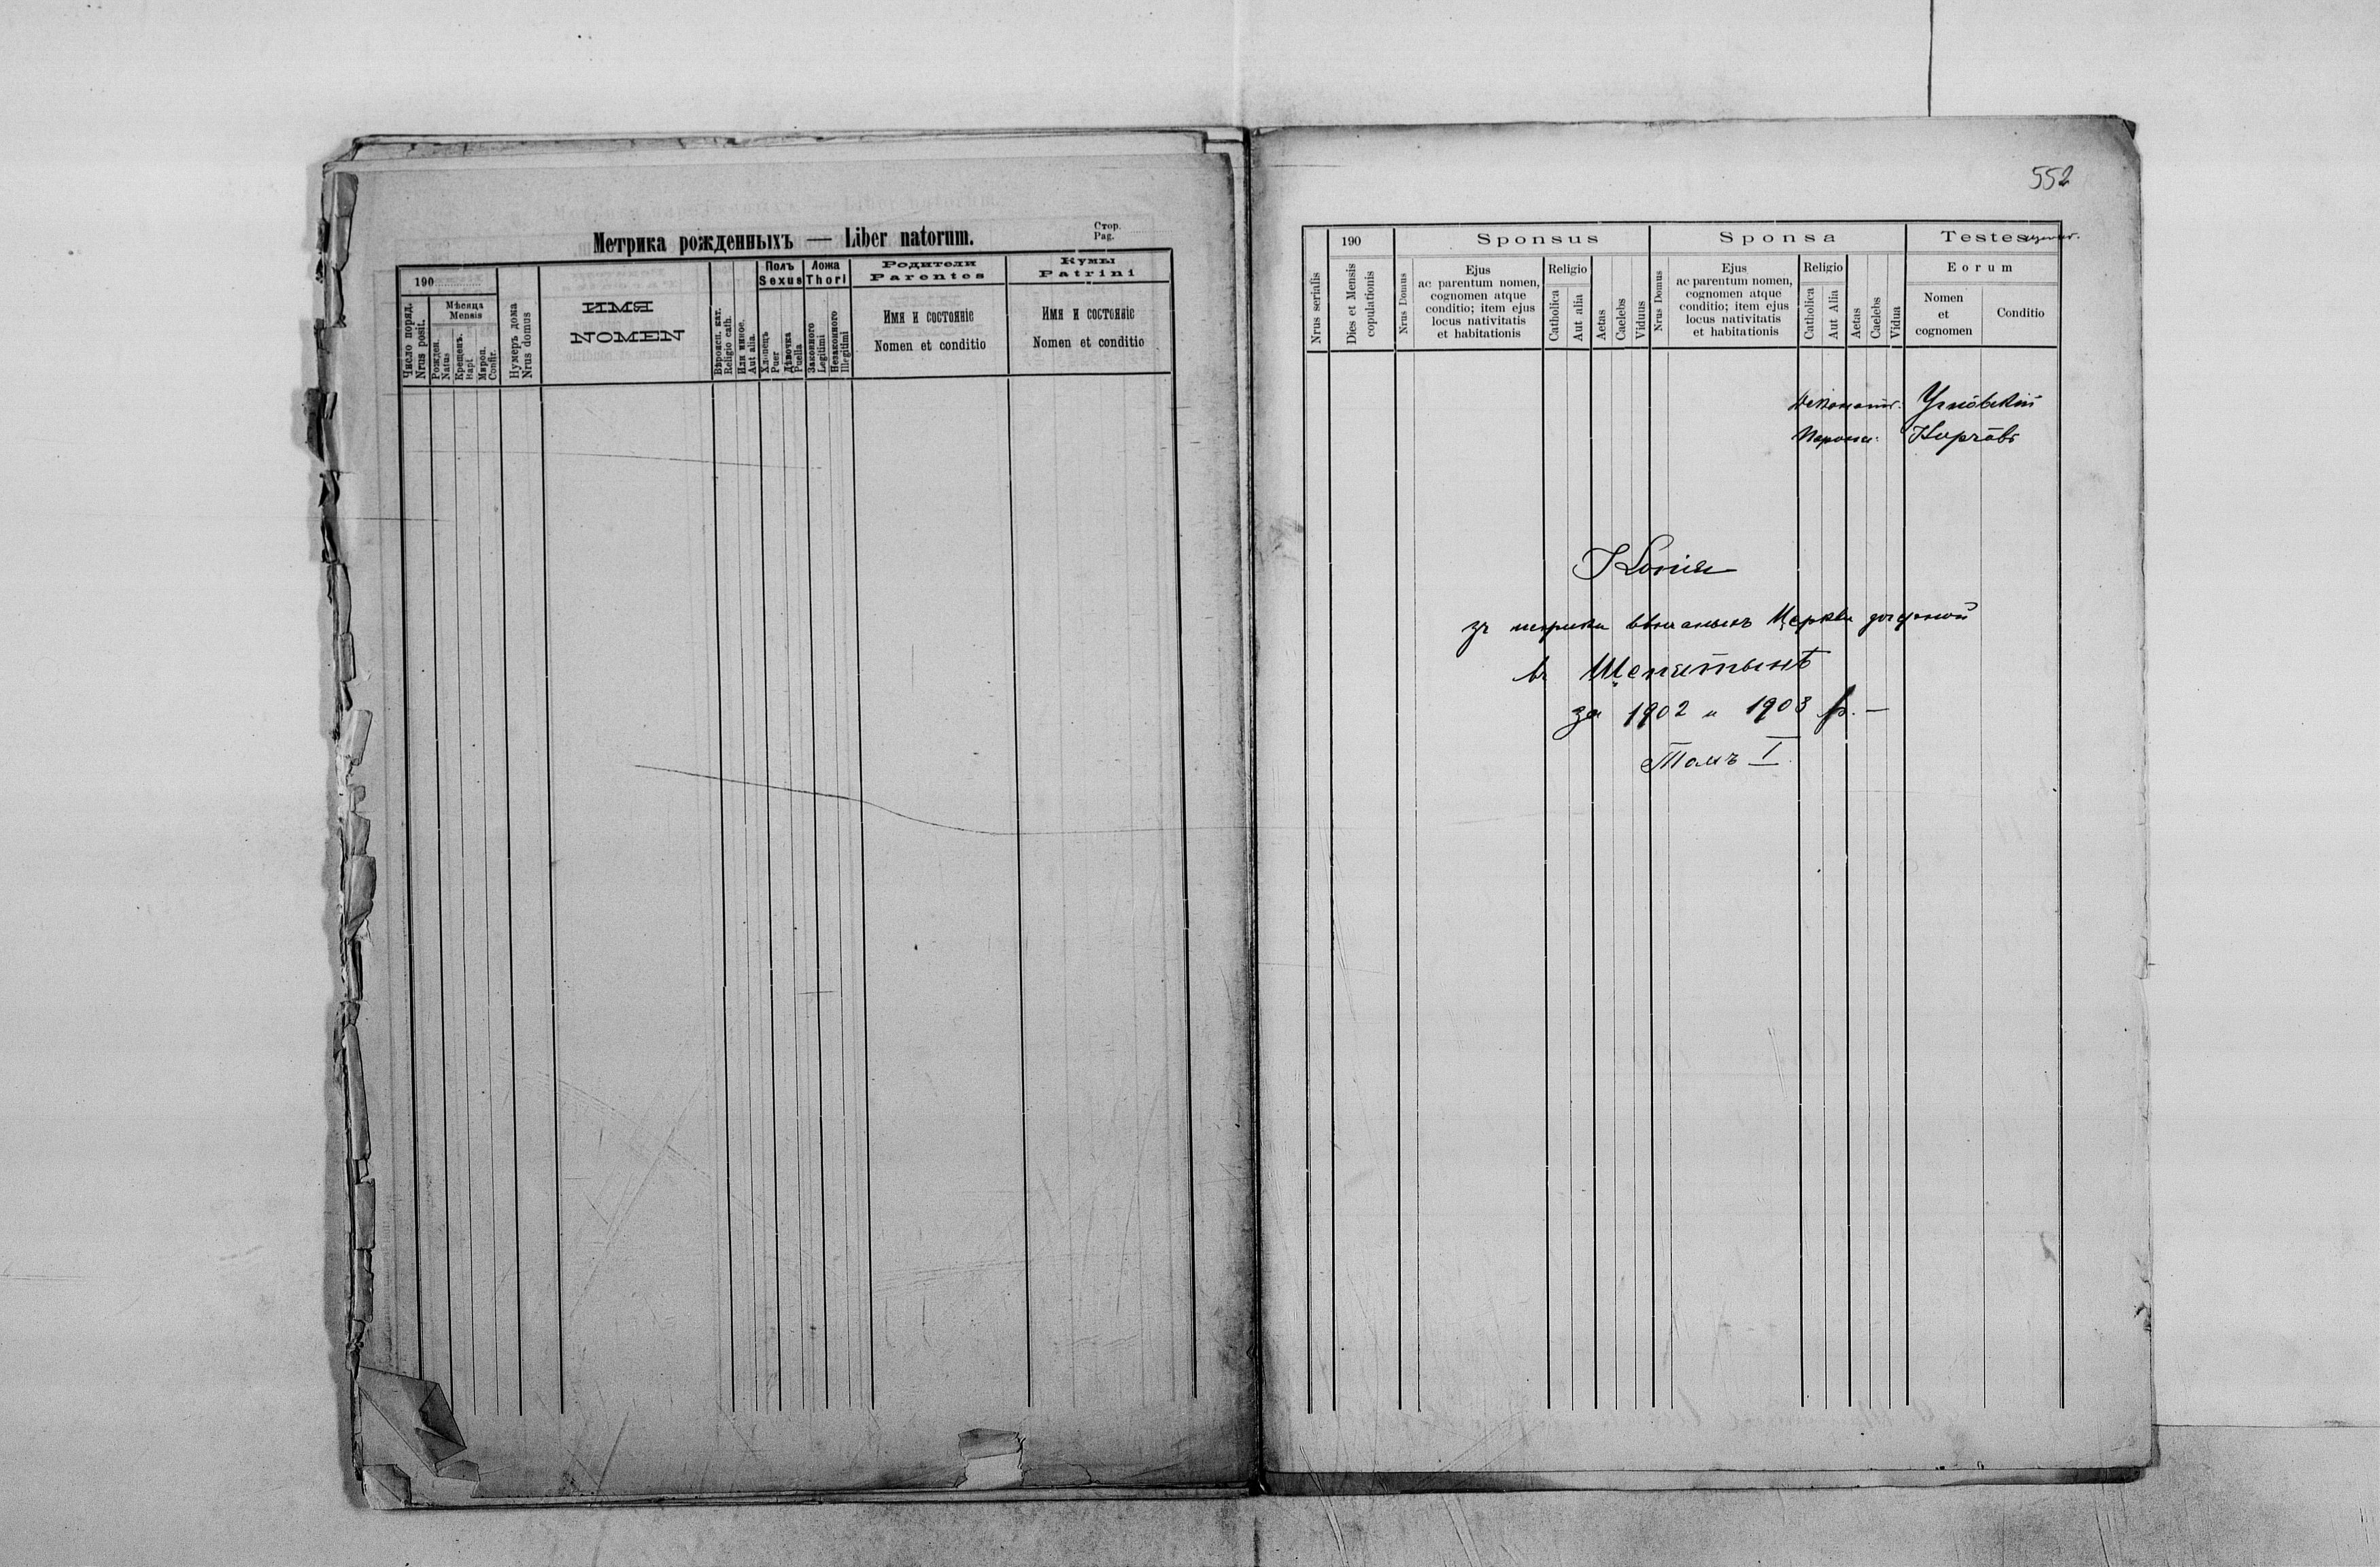 Метрика рожденныхъ — Liber natorum.
Стор.
Pag.
190
Число поряд.
Nrus posit.
Мѣсяца
Mensis
Рожден.
Natus
Крещенъ.
Bapt.
Мѵроп.
Confir.
Нумеръ дома
Nrus domus
ИМЯ
NOMEN
Вѣроисп. кат.
Religio cath.
Или иное.
Aut alia.
Полъ
Sexus
Хлопецъ
Puer
Дѣвочка
Puella
Ложа
Thori
Законного
Legitimi
Незаконного
Illegitimi
Родители
Parentes
Имя и состоянiе
Nomen et conditio
Кумы
Patrini
Имя и состоянiе
Nomen et conditio
552
Nrus serialis
190
Dies et Mensis
copulationis
Sponsus
Nrus Domus
Ejus
ac parentum nomen,
cognomen atque
conditio; item ejus
locus nativitatis
et habitationis
Religio
Catholica
Aut alia
Aetas
Caelebs
Viduus
Sponsa
Nrus Domus
Ejus
ac parentum nomen,
cognomen atque
conditio; item ejus
locus nativitatis
et habitationis
Religio
Catholica
Aut Alia
Aetas
Caelebs
Vidua
Testes
Eorum
Nomen
et
cognomen
Conditio
Деканатъ: Угнôвскiй
Парохiя: Корчôвъ
Копiя
зъ метрики вѣнчаныхъ Церкви дочерной
въ Щепятынѣ
за 1902 и 1903 р. —
Томъ I.